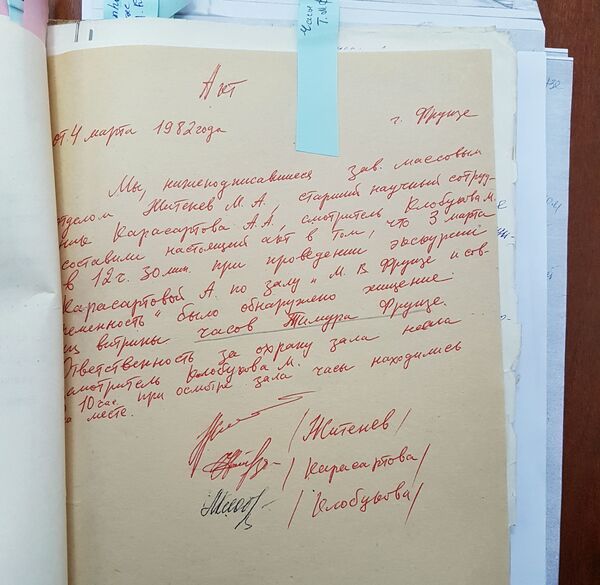 Часы
Акт
от 4 марта 1982 года г. Фрунзе
Мы, нижеподписавшиеся зав. массовым
отделом Житенев М.А., старший научный сотруд-
ник Карасартова А.А., смотритель Клобукова М.
составили настоящий акт в том, что 3 марта
в 12 ч. 30 мин. при проведении экскурсии
Карасартовой А. по залу "М.В. Фрунзе и сов-
ременность" было обнаружено хищение
из витрины часов Тимура Фрунзе.
Ответственность за охрану зала несла
смотритель Клобукова М.
в 10 час при осмотре зала часы находились
на месте.
/Житенев/
/Карасартова/
/Клобукова/